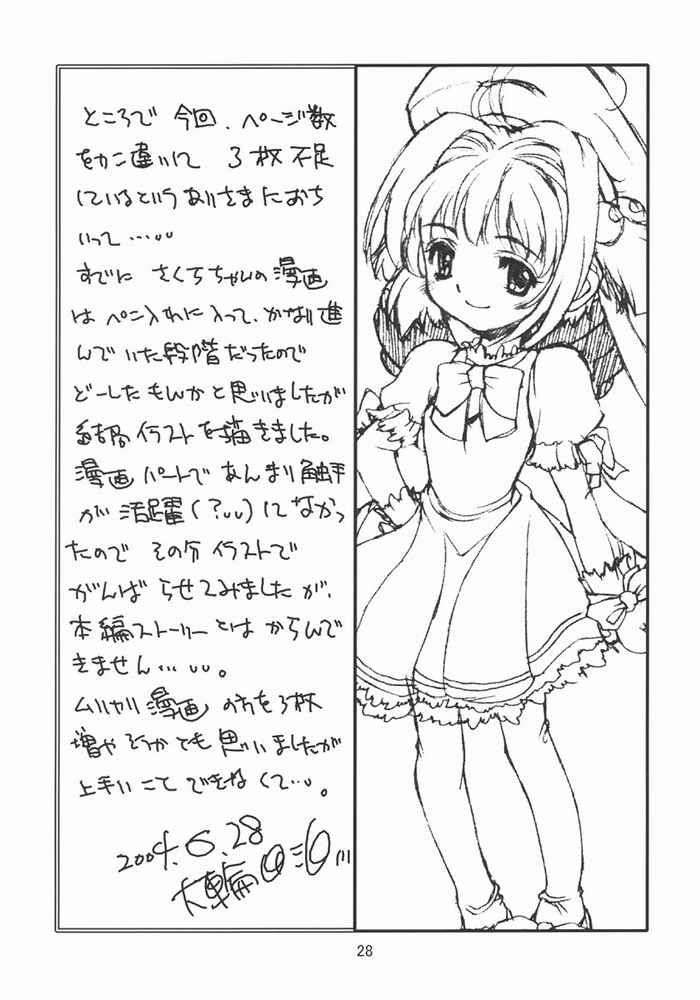 ところで 今回、ページ数
をカン違いして 3枚不足
しているという ありさまにおち
いって……
すでに さくらちゃんの漫画
は ペン入れに入って、かなり進
んでいた段階だったので
どーしたもんかと思いましたが
結局イラストを描きました。
漫画パートであんまり触手
が 活躍(?)しなかっ
たので その分 イラストで
がんばらせてみましたが、
本編ストーリーとは からんで
きません…。
ムリヤリ漫画の方を3枚
増やそうかとも思いましたが
上手いこと できなくて…。
2004.6.28
大輪
28